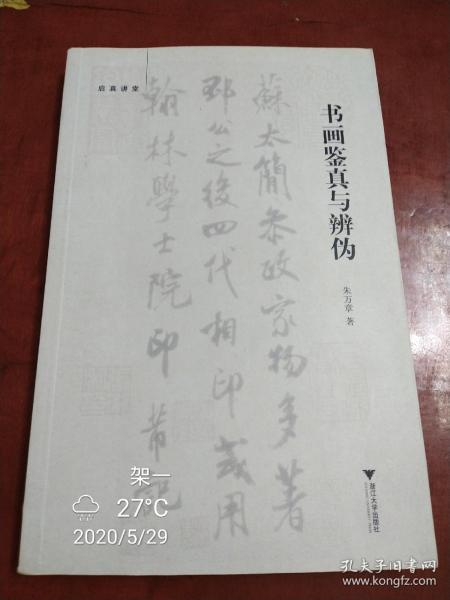 启真讲堂
书画鉴真与辨伪
朱万章 著
蘇太簡參政家物多著
邳公之後四代相印或用
翰林學士院印 芾記
浙江大学出版社
架一
27°C
2020/5/29
孔夫子旧书网
www.kongfz.com